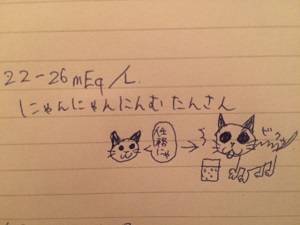 22-26mEq/L
にゃんにゃんにんむたんさん
任務にゃ